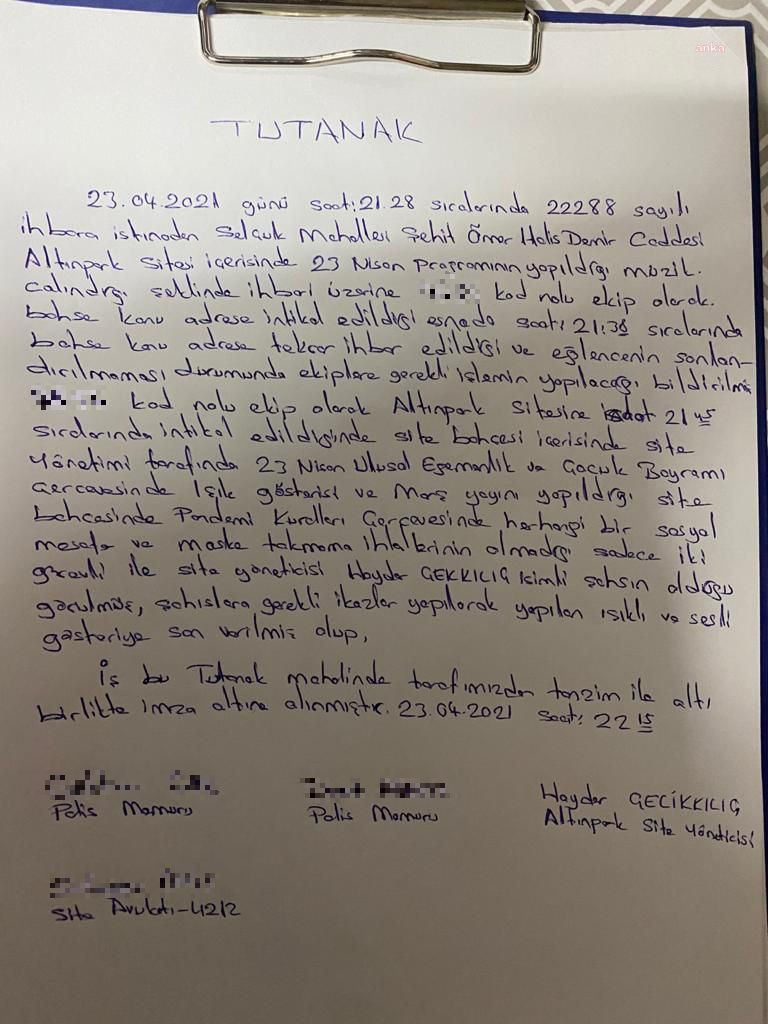 anka
TUTANAK
23.04.2021 günü saat:21.28 sıralarında 22288 sayılı
ihbara istinaden Selçuk Mahallesi Şehit Ömer Halis Demir Caddesi
Altınpark Sitesi içerisinde 23 Nisan programının yapıldığı müzik.
çalındığı şeklinde ihbarı üzerine kod nolu ekip olarak.
bahse konu adrese intikal edildiği esnada saat: 21:36 sıralarında
bahse konu adrese tekrar ihbar edildiği ve eğlencenin sonlan-
dırılmaması durumunda ekiplere gerekli işlemin yapılacağı bildirilmiş
kod nolu ekip olarak Altınpark Sitesine saat 21 45
sıralarında intikal edildiğinde site bahçesi içerisinde site
Yönetimi tarafında 23 Nisan Ulusal Egemenlik ve Çocuk Bayramı
Çerçevesinde Işık gösterisi ve Marş yayını yapıldığı site
bahçesinde Pandemi Kuralları Çerçevesinde herhangi bir sosyal
mesafe ve maske takmama ihlallerinin olmadığı sadece iki
görevli ile site yöneticisi Haydar ÇEKKILIÇ isimli şahsın olduğu
görülmüş, şahıslara gerekli ikazlar yapılarak yapılan ışıklı ve sesli
gösteriye son verilmiş olup,
İş bu Tutanak mahalinde tarafımızdan tanzim ile altı
birlikte imza altına alınmıştır. 23.04.2021 saat: 22 15
Haydar GEÇİKKILIÇ
Polis Memuru Polis Memuru Altınpark Site Yöneticisi
Site Avukatı-4212